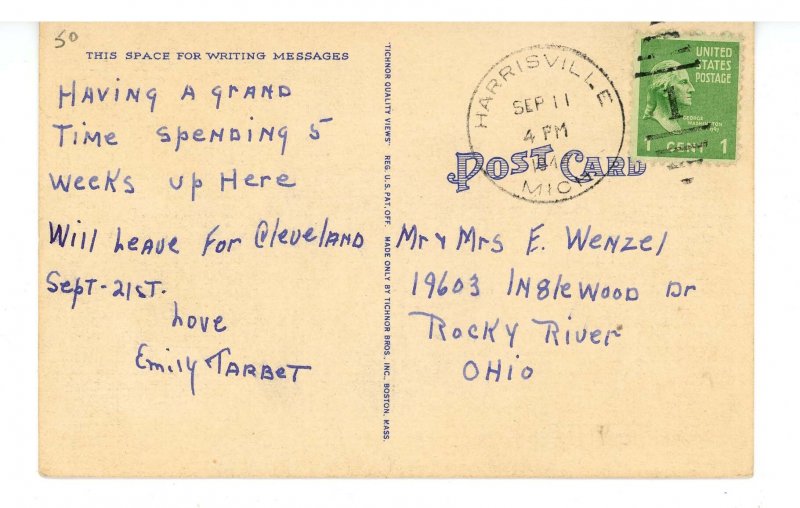 50
THIS SPACE FOR WRITING MESSAGES
Having a grand
Time spending 5
weeks up Here
Will leave for Cleveland
Sept-21st.
Love
Emily Tarbet
"TICHNOR QUALITY VIEWS" REG. U.S. PAT. OFF. MADE ONLY BY TICHNOR BROS., INC., BOSTON, MASS.
HARRISVILLE
SEP 11
4 PM
MICH
UNITED
STATES
POSTAGE
1
GEORGE
WASHINGTON
1 CENT 1
POST CARD
Mr y Mrs E. Wenzel
19603 Inglewood Dr
Rocky River
Ohio